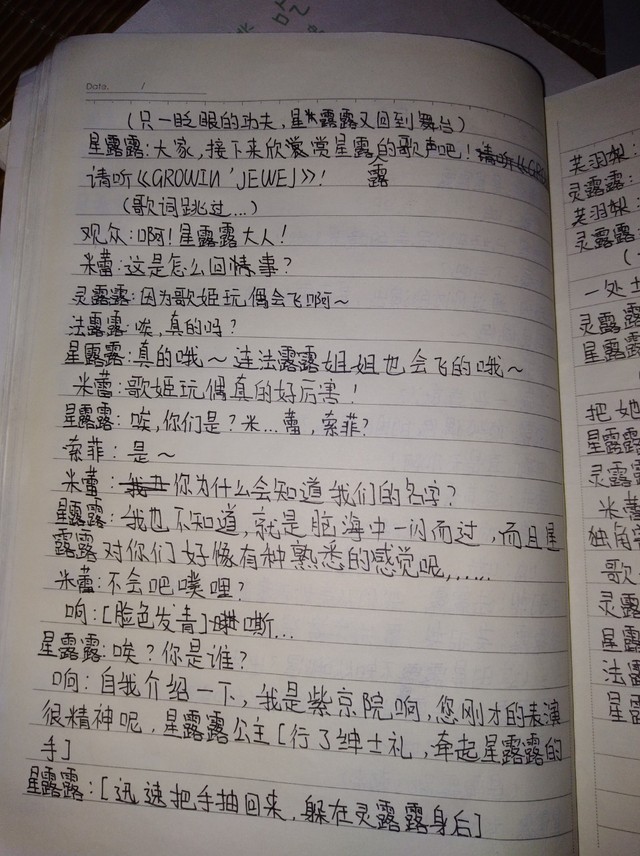 Date. /
(只一眨眼的功夫,星露露又回到舞台)
星露露:大家,接下来欣赏星露露的歌声吧!
请听《GROWIN'JEWEL》!
(歌词跳过...)
观众:啊!星露露大人!
米蕾:这是怎么回情事?
灵露露:因为歌姬玩偶会飞啊~
法露露:唉,真的吗?
星露露:真的哦~连法露露姐姐也会飞的哦~
米蕾:歌姬玩偶真的好厉害!
星露露:唉,你们是?米...蕾,索菲?
索菲:是~
米蕾:你为什么会知道我们的名字?
星露露:我也不知道,就是脑海中一闪而过,而且星
露露对你们好像有种熟悉的感觉呢,......
米蕾:不会吧噗哩?
响:[脸色发青]嘶...
星露露:唉?你是谁?
响:自我介绍一下,我是紫京院响,您刚才的表演
很精神呢,星露露公主[行了绅士礼,牵起星露露的
手]
星露露:[迅速把手抽回来,躲在灵露露身后]
芙羽梨:
灵露露:
芙羽梨:
灵露露:
一处
灵露露
星露露
把她
星露露
灵露露
米蕾
独角
歌
灵露露
星露露
法露露
星露